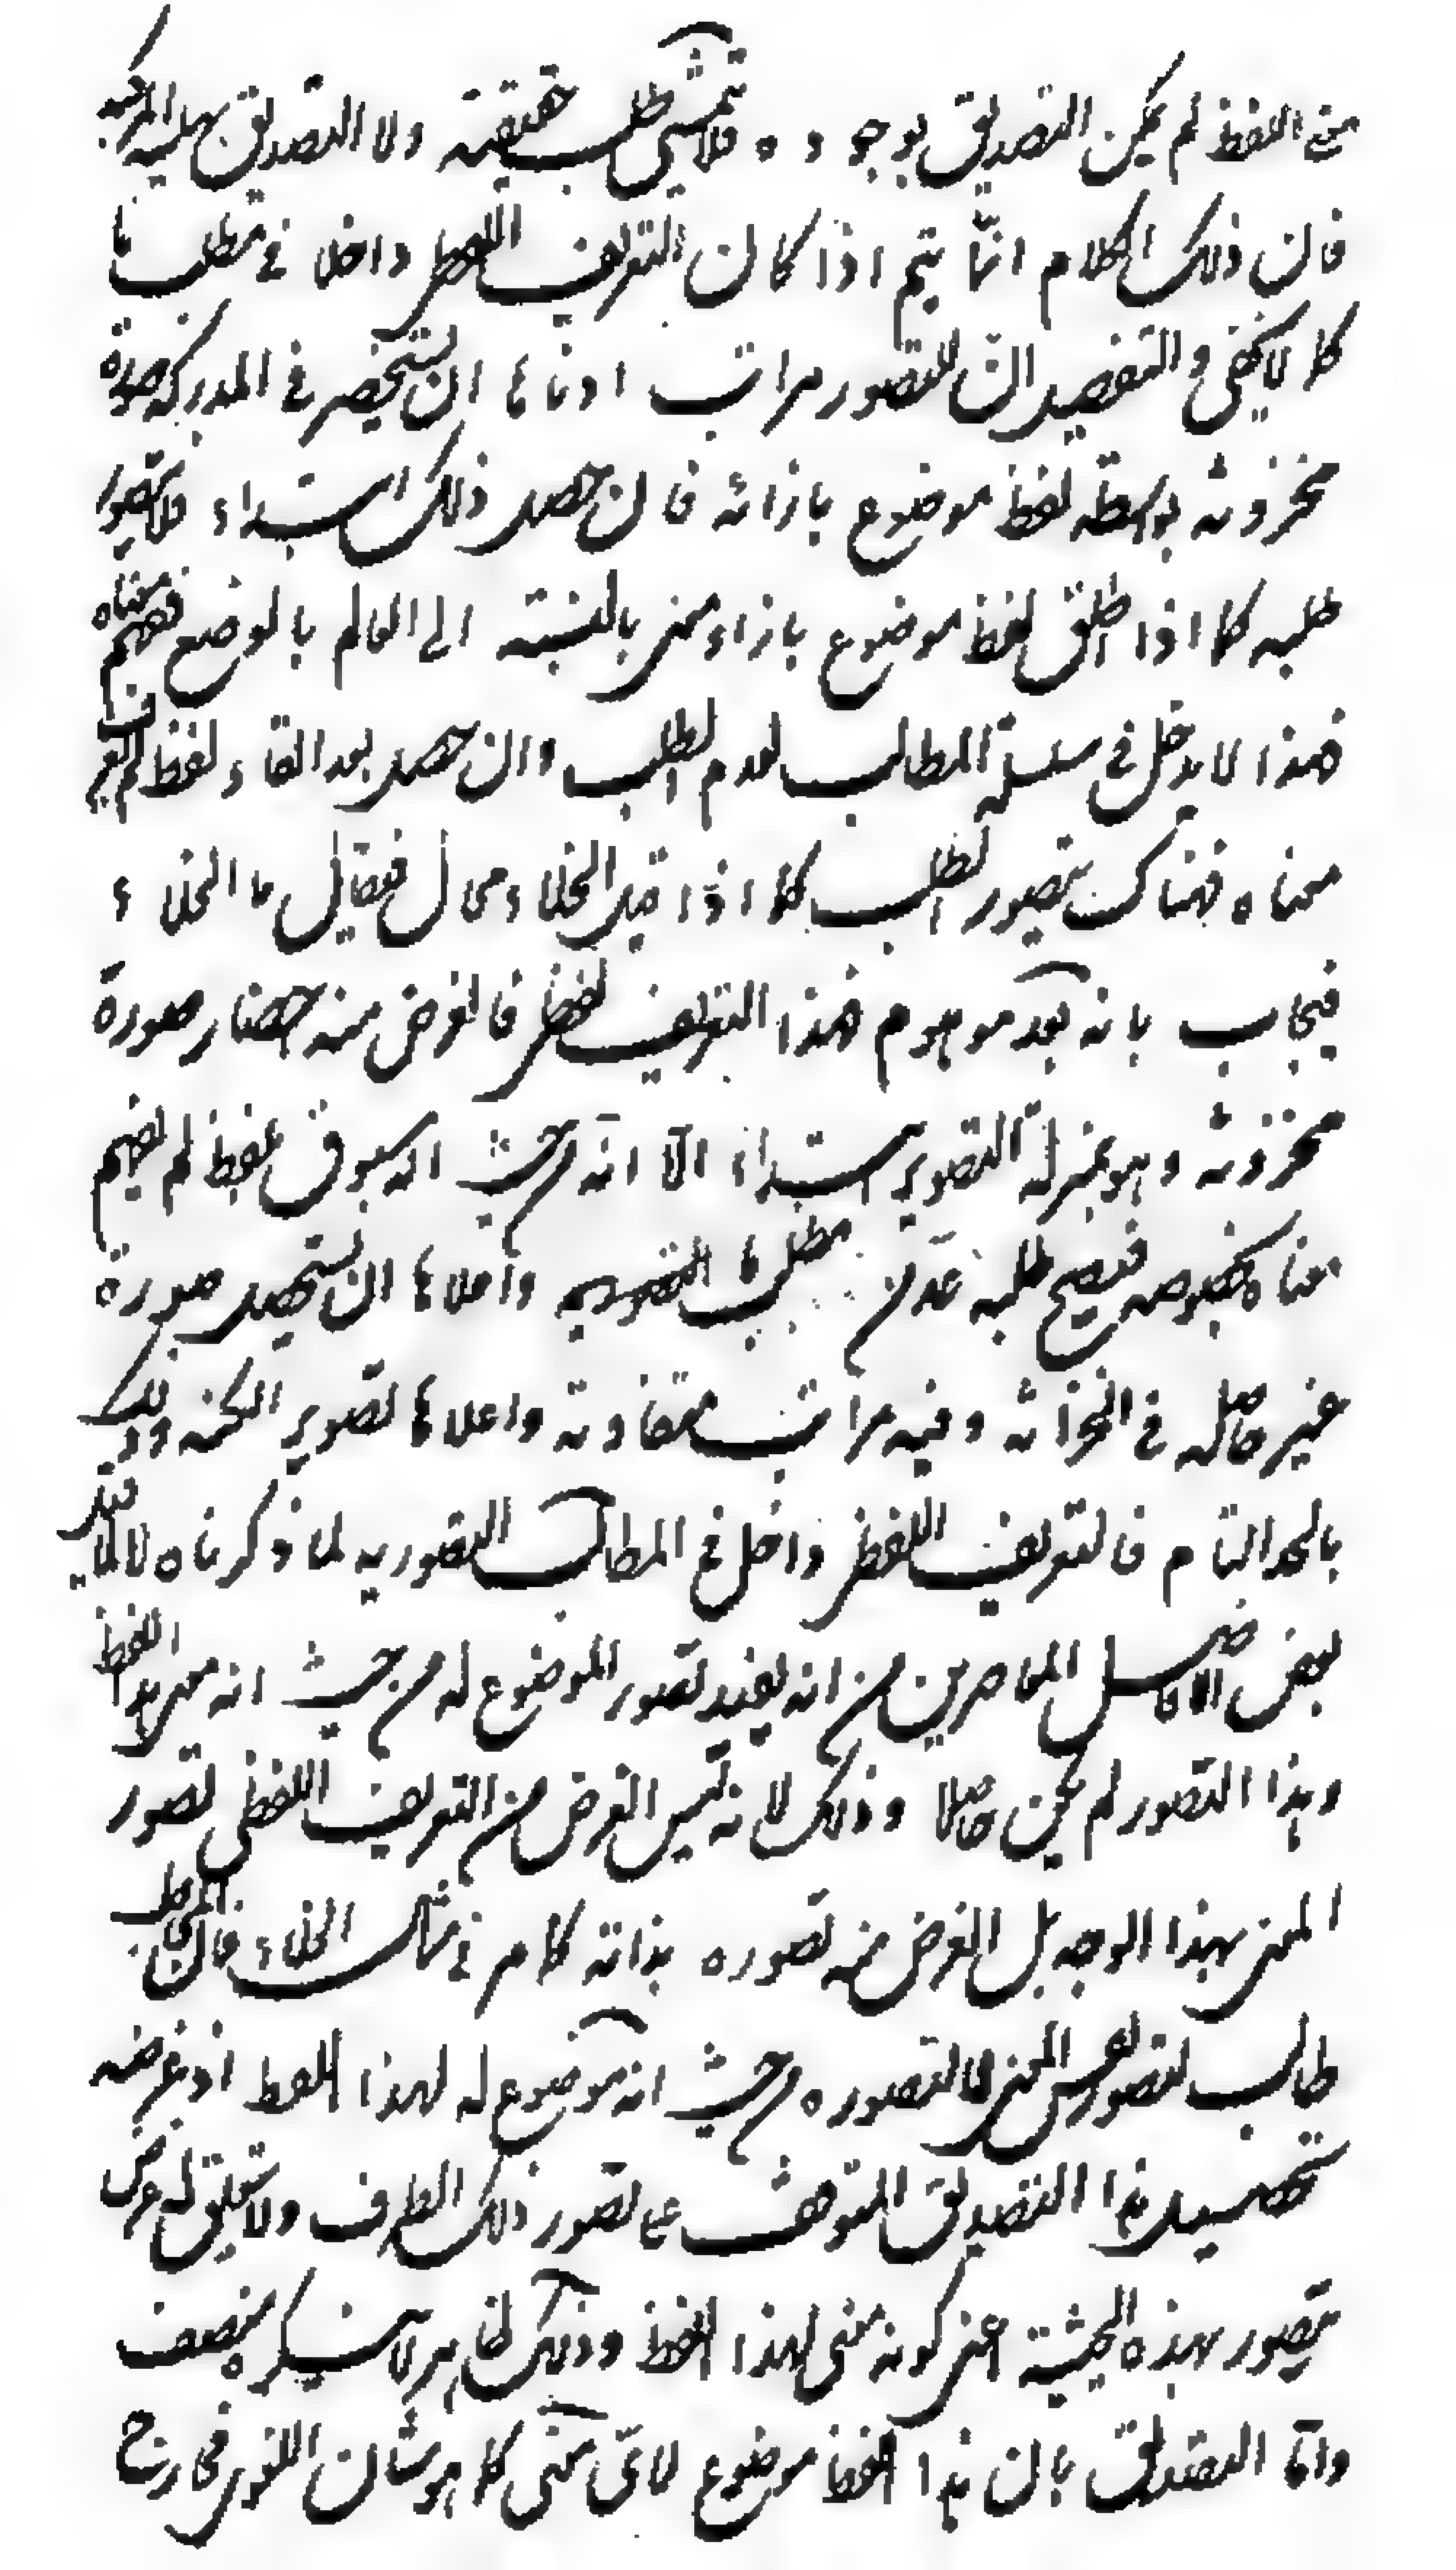 معنى اللفظ لم يكن التصديق بوجوده فلا يتمشى طلب حقيقته ولا التصديق بهليته المركبة
فان ذلك الكلام انما يتم اذا كان التعريف اللفظى داخلا فى مطلب ما
كما لا يخفى والتفصيل ان للتصور مراتب ادناها ان يستحضر فى المدركة صورة
مخزونة بواسطة لفظ موضوع بازائه فان حصل ذلك ابتداء فلا يتصور
طلبه كما اذا اطلق لفظ موضوع بازاء معنى بالنسبة الى العالم بالوضع ففهم معناه
فهذا لا يدخل فى سلسلة المطالب لعدم الطلب وان حصل بعد القاء لفظ لم يفهم
معناه فهناك يتصور الطلب كما اذا قيل الخلاء محال فيقال ما الخلاء
فيجاب بانه بعد موهوم فهذا التعريف لفظى فالغرض منه احضار صورة
مخزونة وهو بمنزلة التصوير ابتداء الا انه من حيث انه مسبوق بلفظ لم يفهم
معناه بخصوصه فيصح طلبه عد من مطلب ما التصورية واعلاها ان يستحصل صورة
غير حاصلة فى الخزانة وفيه مراتب متفاوتة واعلاها تصوير الكنه وذلك
بالحد التام فالتعريف اللفظى داخل فى المطالب التصورية لما ذكرناه لا لما قيل
بعض الافاضل المعاصرين من انه يفيد تصور الموضوع له من حيث انه معنى هذا اللفظ
وهذا التصور لم يكن حاصلا وذلك لانه ليس الغرض من التعريف اللفظى تصور
المعنى بهذا الوجه بل الغرض منه تصوره بذاته كما مر فى مثال الخلاء فان المخاطب
طالب لتصور نفس المعنى لا لتصوره من حيث انه موضوع له لهذا اللفظ اذ غرضه
تحصيل هذا التصديق المتوقف على تصور ذلك الطرف ولا يتعلق له غرض
بتصور بهذه الحيثية اعنى كونه معنى لهذا اللفظ وذلك ظاهر لا ينكره منصف
واما التصديق بان هذا اللفظ موضوع لاى معنى كما هو شان اللغوى فخارج